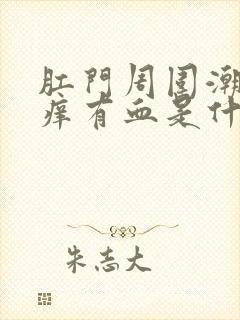 肛門周圍潮
癢有血是什
朱志大